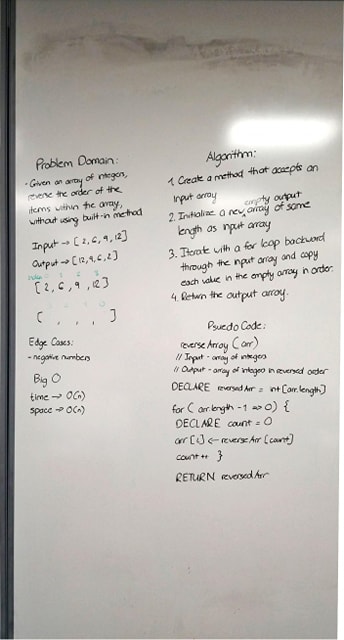 Problem Domain:
- Given an array of integers,
reverse the order of the
items within the array,
without using built-in method
Input → [2, 6, 9, 12]
Output → [12, 9, 6, 2]
[2, 6, 9, 12]
[ , , , ]
Edge Cases:
- negative numbers
Big O
time → O(n)
space → O(n)
Algorithm:
1. Create a method that accepts an
input array
2. Initialize a new empty output array of same
length as input array
3. Iterate with a for loop backward
through the input array and copy
each value in the empty array in order.
4. Return the output array.
Psuedo Code:
reverseArray (arr)
// Input - array of integers
// Output - array of integers in reversed order
DECLARE reversedArr = int[arr.length]
for (arr.length - 1 => 0) {
DECLARE count = 0
arr[i] ← reverseArr[count]
count++ }
RETURN reversedArr